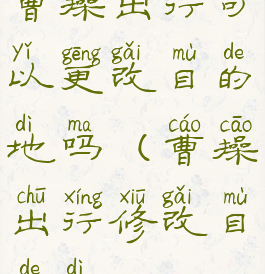 曹操出行可
yǐ gēng gǎi mù de
以更改目的
dì ma cáo cāo
地吗（曹操
chū xíng xiū gǎi mù
出行修改目
de dì